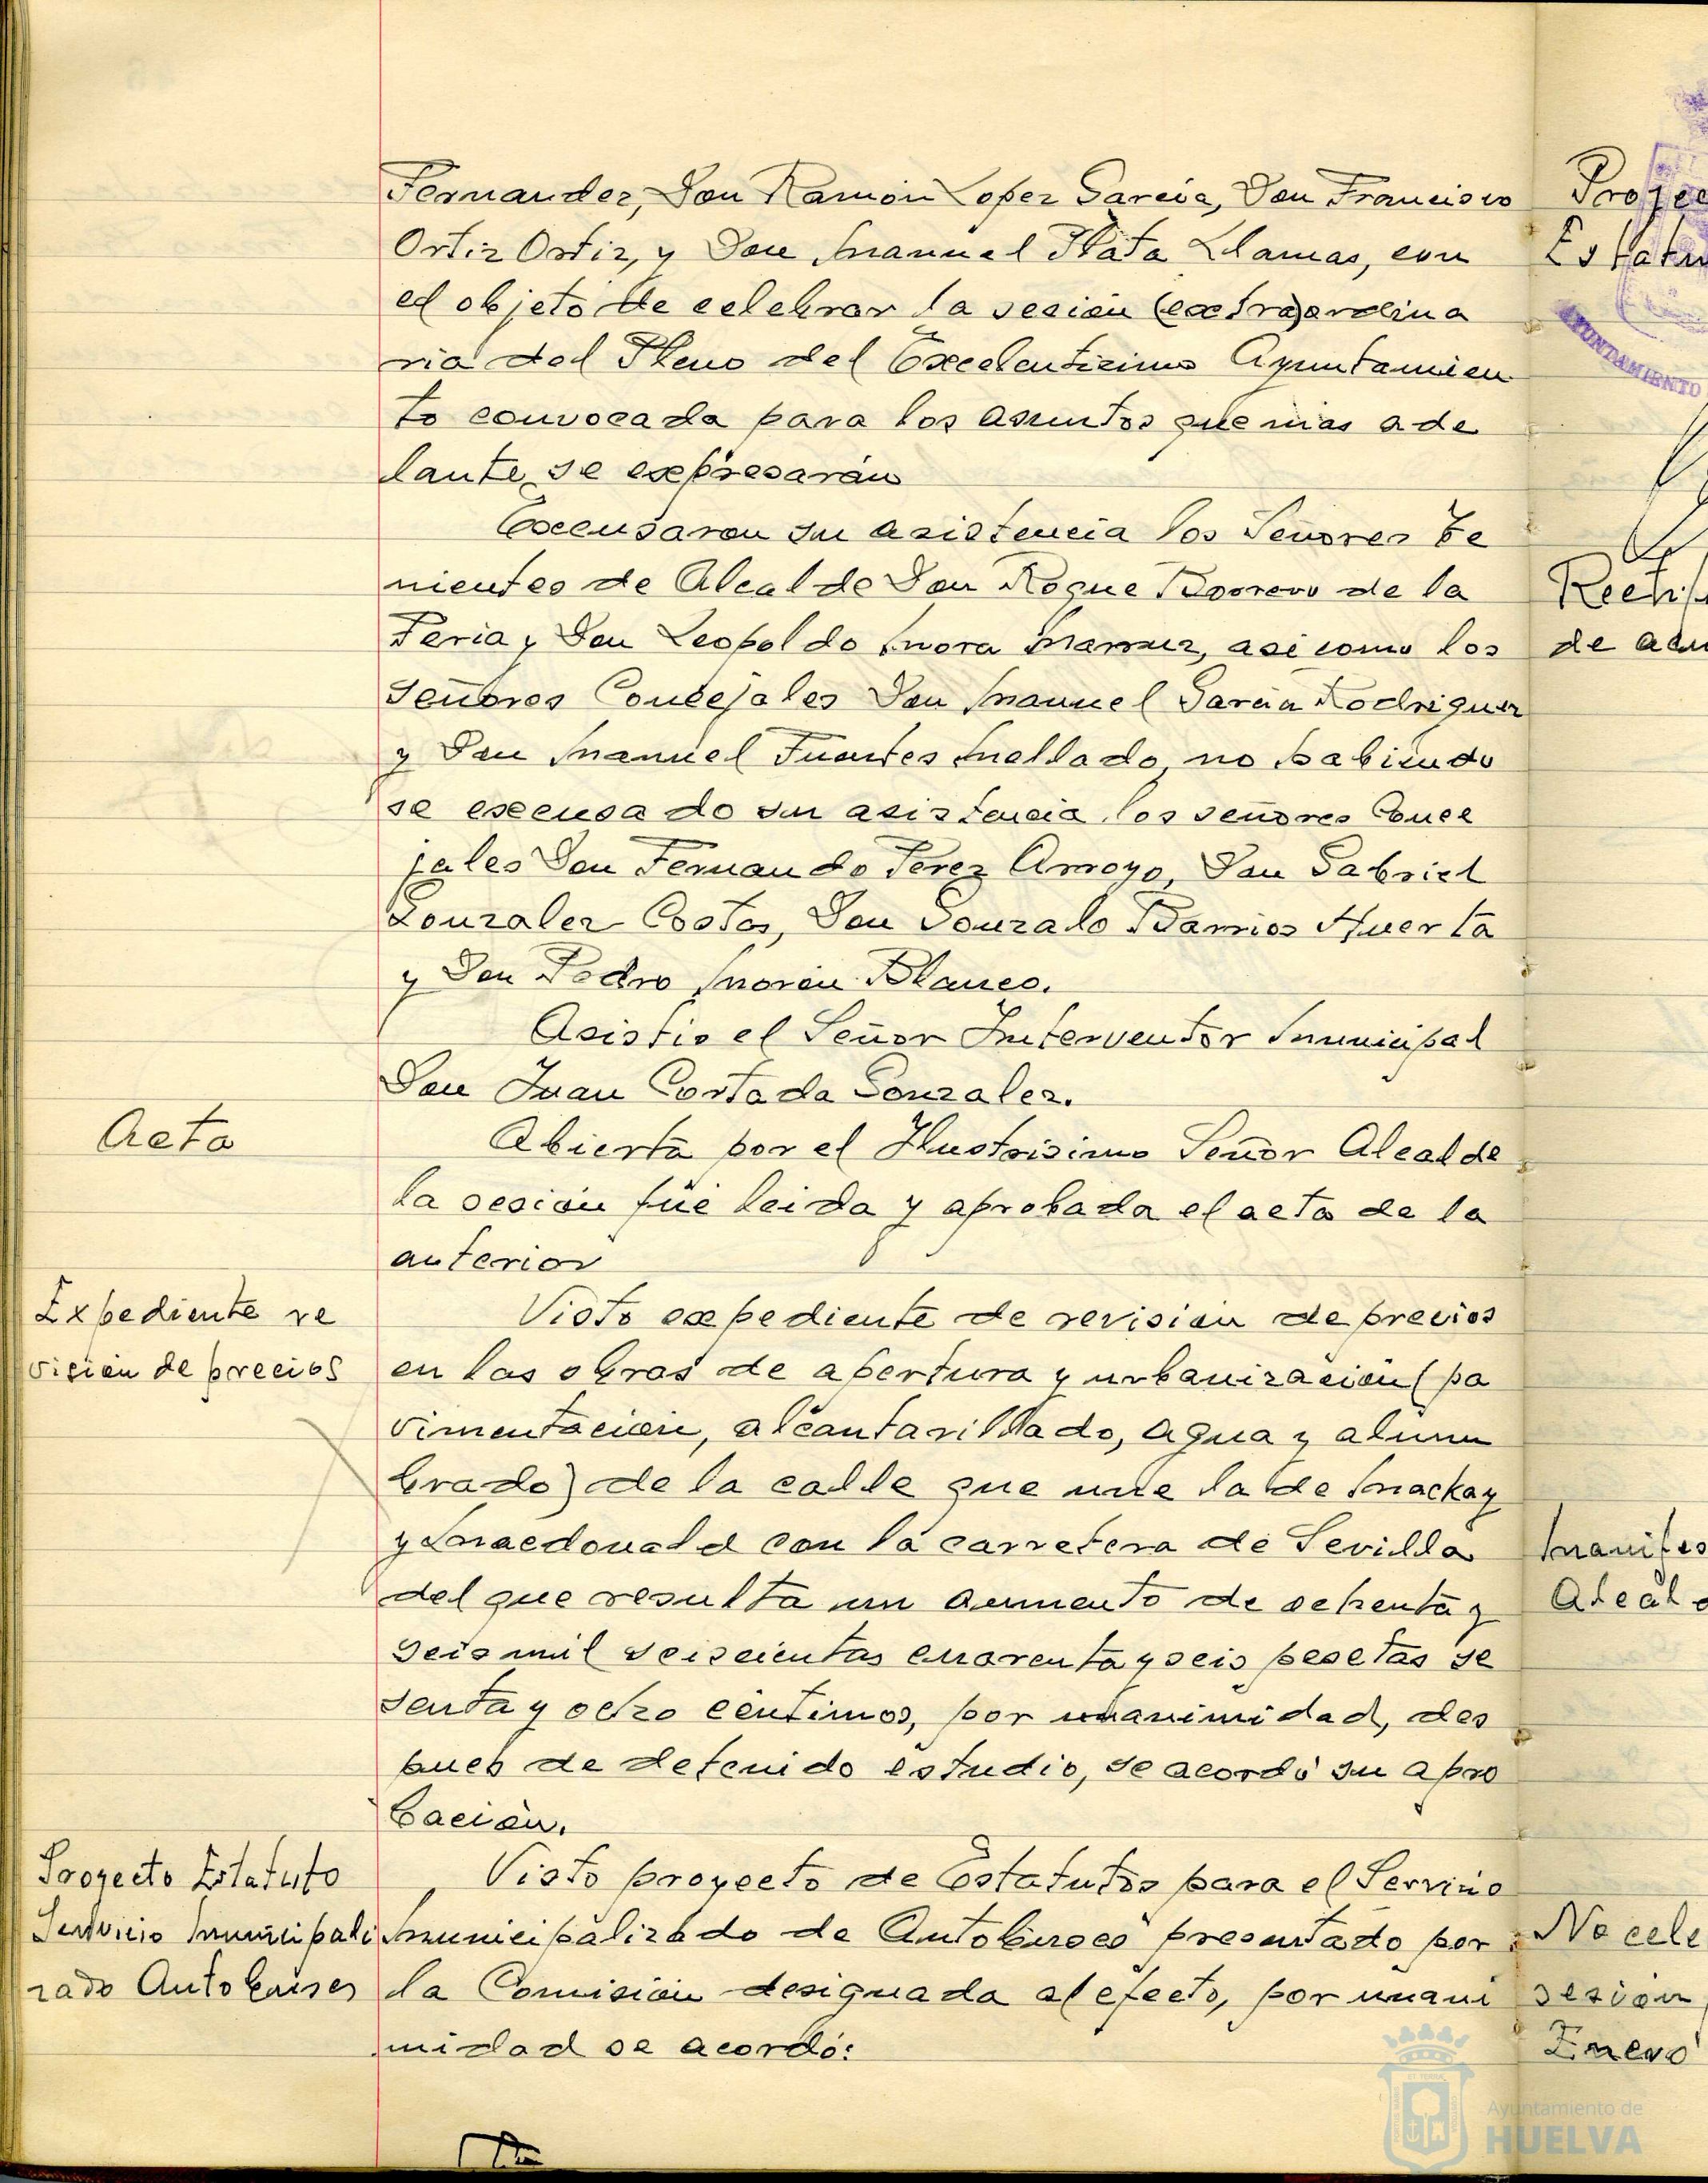 Fernandez, Don Ramón Lopez García, Don Francisco
Ortiz Ortiz, y Don Manuel Plata Llamas, con
el objeto de celebrar la sesión (extra)ordina
ria del Pleno del Excelentisimo Ayuntamien
to convocada para los asuntos que mas ade
lante se expresarán
Excusaron su asistencia los Señores Te
nientes de Alcalde Don Roque Borrero de la
Feria y Don Leopoldo Mora asi como los
Señores Concejales Don Manuel García Rodriguez
y Don Manuel Fuentes Mellado, no habiendo
se excusado su asistencia los señores Conce
jales Don Fernando Perez Arroyo, Don Gabriel
Gonzalez Costas, Don Gonzalo Barrios Huerta
y Don Pedro Morón Blanco.
Asistio el Señor Interventor Municipal
Don Juan Cortada Gonzalez.
Acta
Abierta por el Ilustrisimo Señor Alcalde
la sesión fué leida y aprobada el acta de la
anterior
Expediente re
visión de precios
Visto expediente de revisión de precios
en las obras de apertura y urbanización (pa
vimentación, alcantarillado, agua y alum
brado) de la calle que une la de Mackay
y Macdonald con la carretera de Sevilla
del que resulta un aumento de ochenta y
seis mil seiscientas cuarenta y seis pesetas se
senta y ocho céntimos, por unanimidad, des
pues de detenido estudio, se acordó su apro
bación.
Proyecto Estatuto
Servicio Municipali
zado Autobuses
Visto proyecto de Estatutos para el Servicio
Municipalizado de Autobuses presentado por
la Comisión designada al efecto, por unani
midad se acordó:
Proyec
Estatu
AYUNTAMIENTO
Rectif
de acu
Manifes
Alcal
No cele
sesión
Enero
Ayuntamiento de
HUELVA